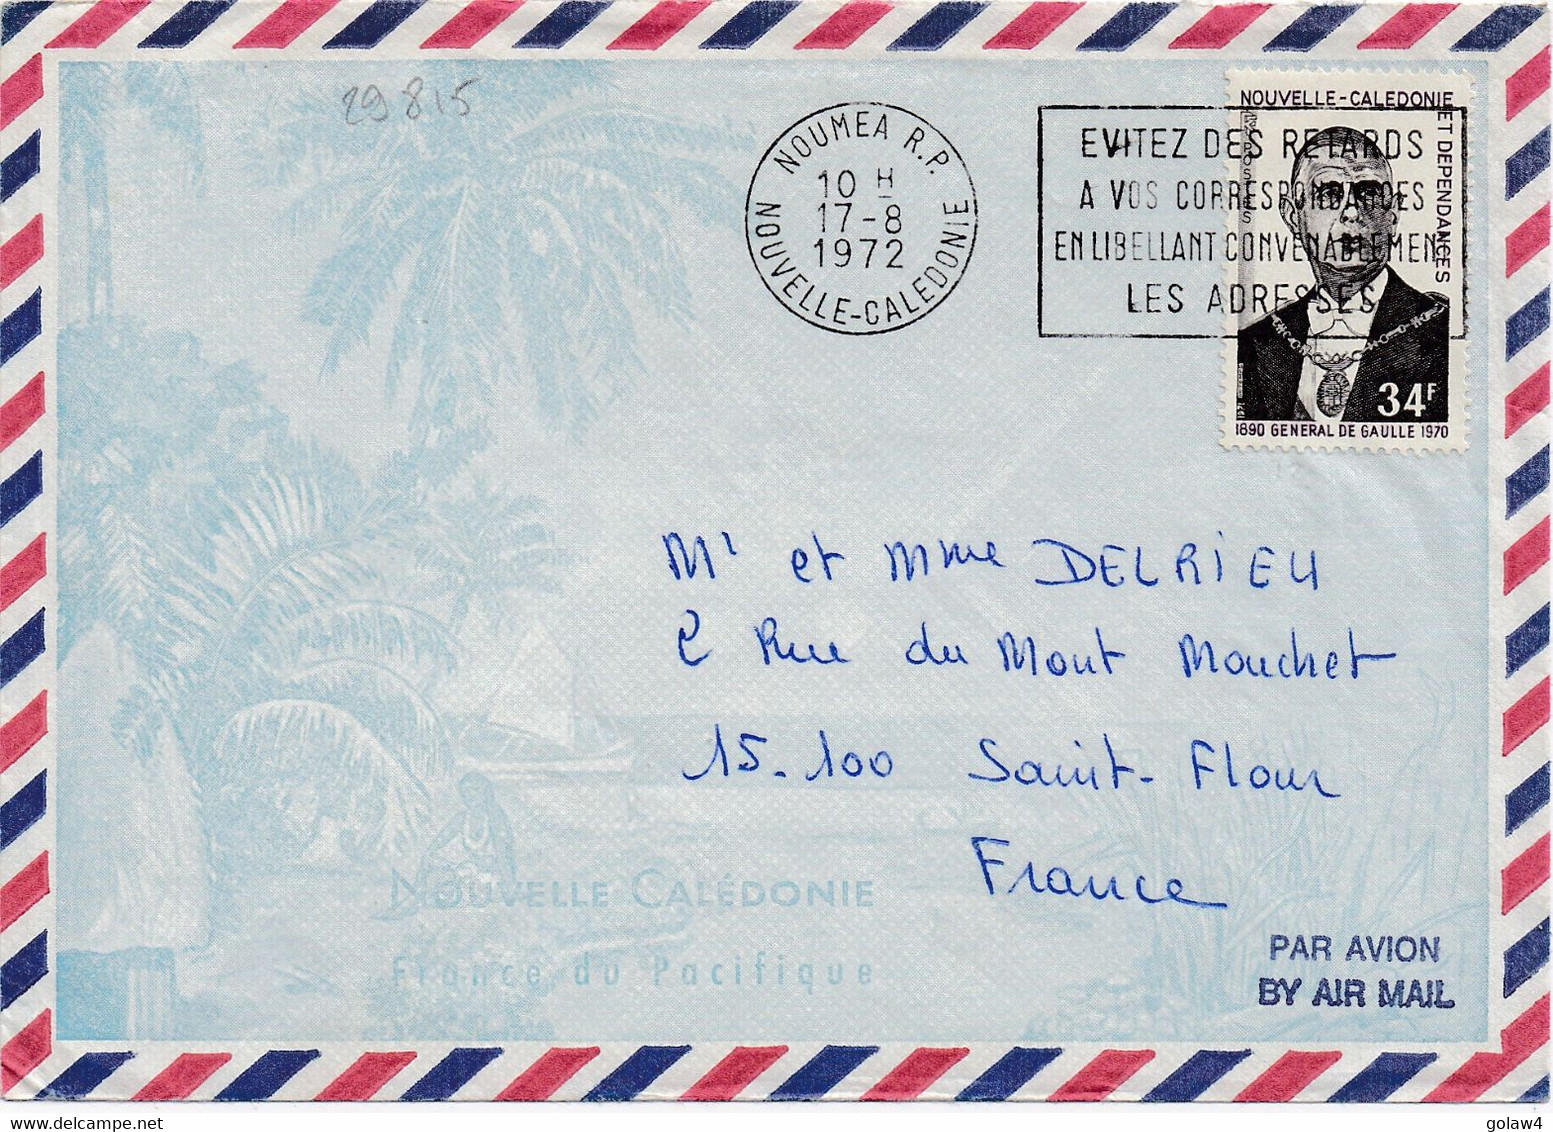 29815
NOUMEA R.P.
10 H
17-8
1972
NOUVELLE-CALEDONIE
EVITEZ DES RETARDS
A VOS CORRESPONDANCES
EN LIBELLANT CONVENABLEMENT
LES ADRESSES
NOUVELLE-CALEDONIE
ET DEPENDANCES
POSTES
34F
1890 GENERAL DE GAULLE 1970
Mr et Mme DELRIEU
2 Rue du Mont Mouchet
15.100 Saint-Flour
France
NOUVELLE CALÉDONIE
France du Pacifique
PAR AVION
BY AIR MAIL
golaw4